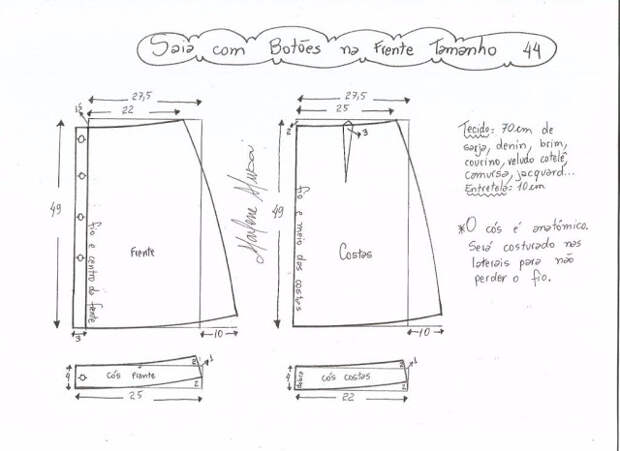 Saia com Botões na Frente Tamanho 44
27,5
22
1,5
49
fio e centro da frente
Frente
3
10
Marlene Mukai
27,5
25
2
3
49
fio e meio das costas
Costas
10
Tecido: 70cm de
sarja, denin, brim,
courino, veludo cotelê,
camursa, jacquard...
Entretela: 10cm
*O cós é anatômico.
Será costurado nas
laterais para não
perder o fio.
4
cós frente
2
1
2
25
4
dobra
cós costas
2
1
2
22